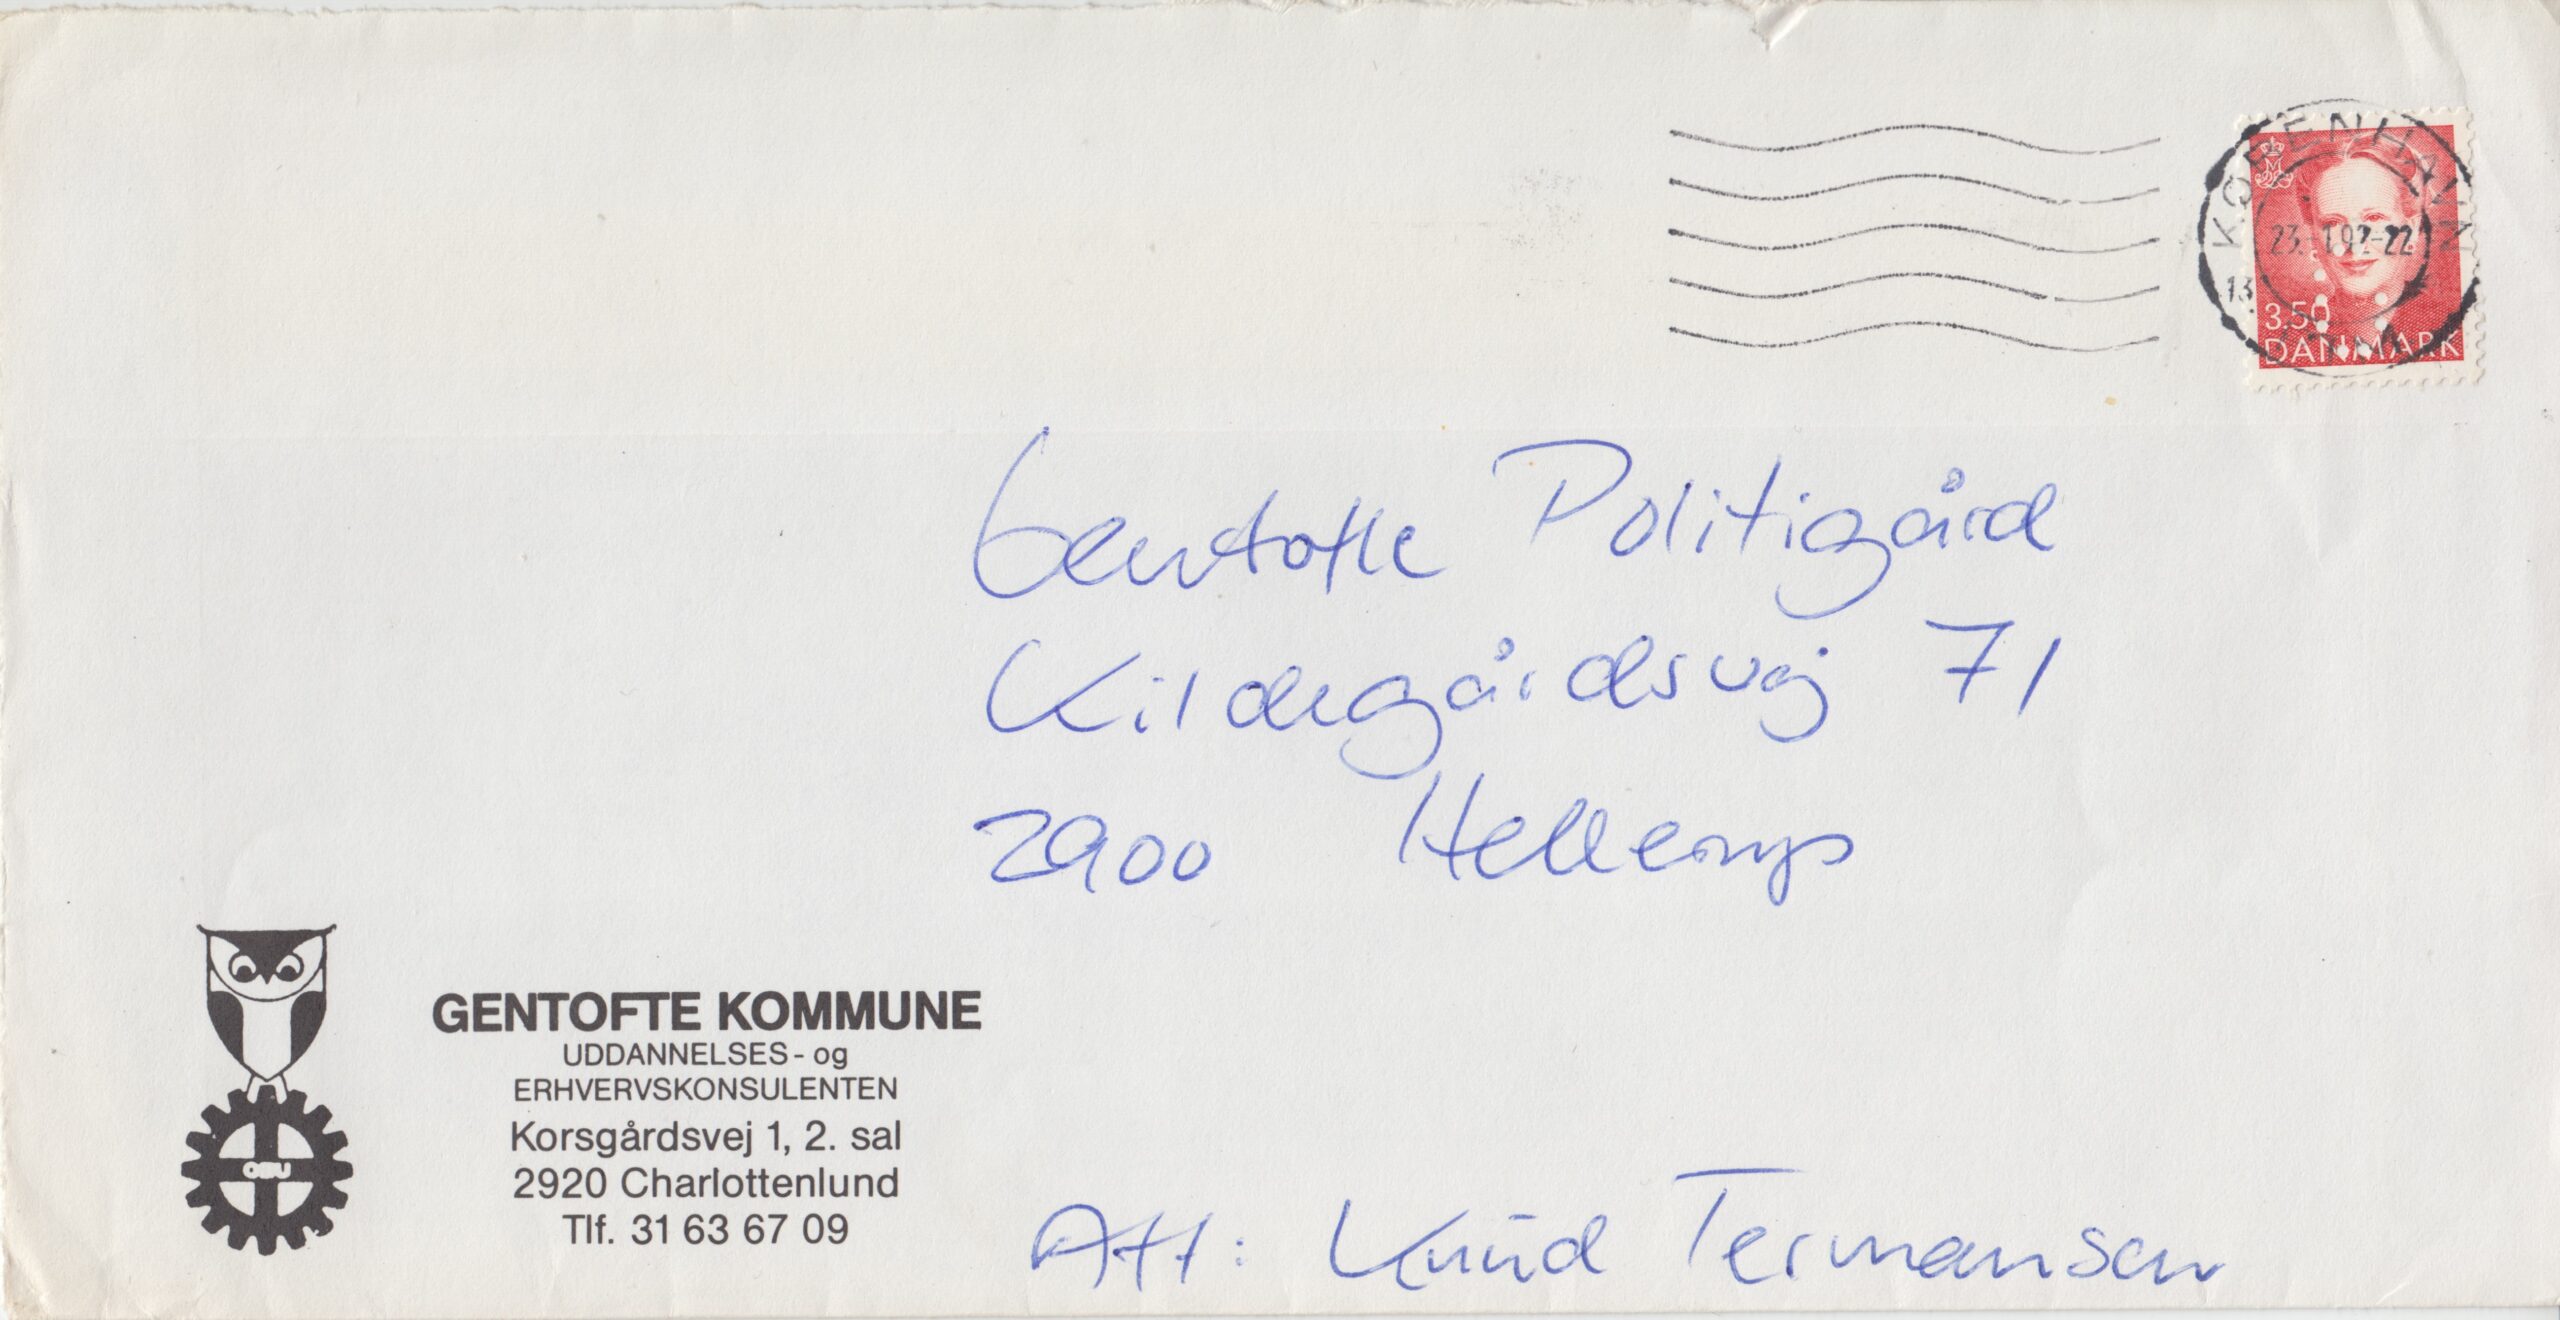 KØBENHAVN
23.-1.92-22
13
3.50
DANMARK
Gentofte Politigård
Kildegårdsvej 71
2900 Hellerup
GENTOFTE KOMMUNE
UDDANNELSES- og
ERHVERVSKONSULENTEN
Korsgårdsvej 1, 2. sal
2920 Charlottenlund
Tlf. 31 63 67 09
Att: Knud Termansen